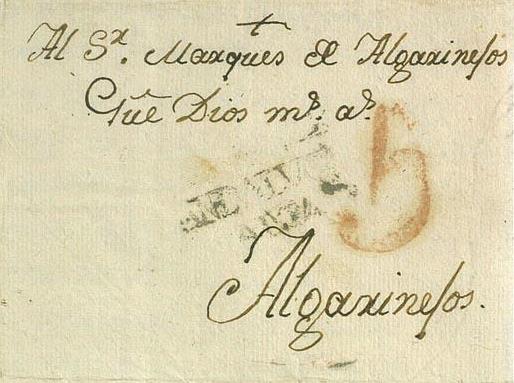 +
Al S.r Marques de Algarinejos
Gue Dios m.s a.s
5
Algarinejos.